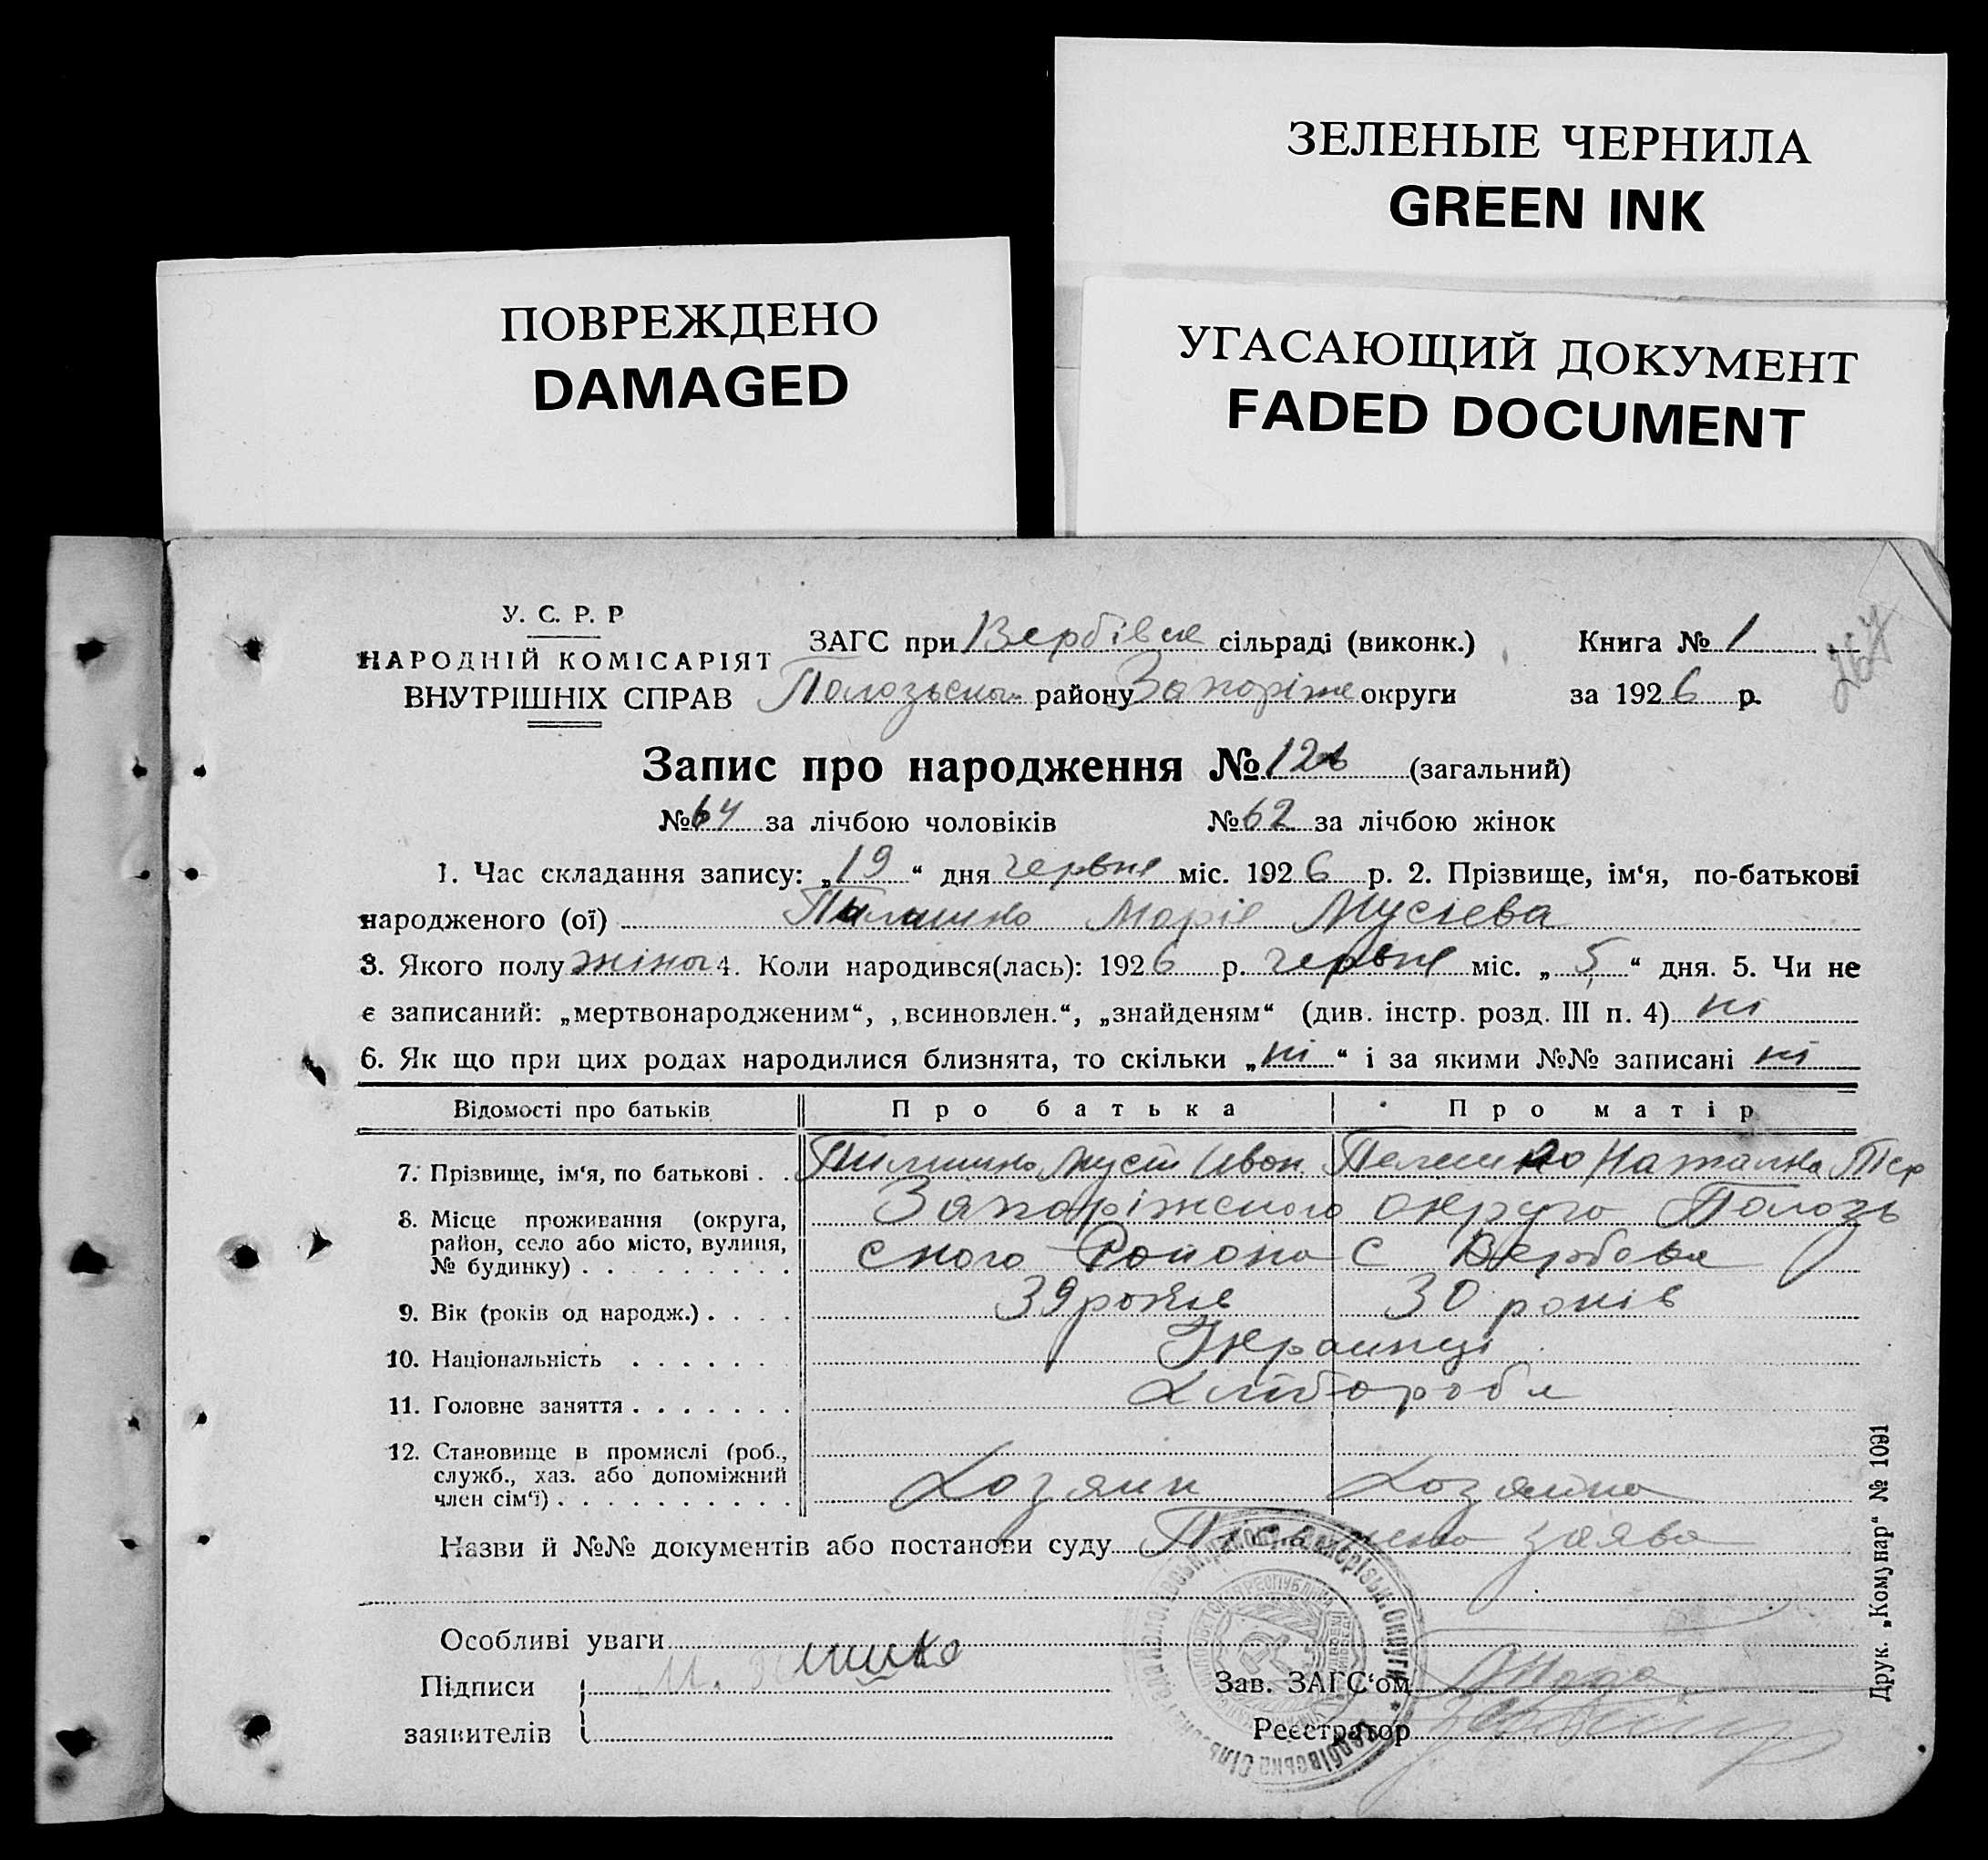 ЗЕЛЕНЫЕ ЧЕРНИЛА
GREEN INK
ПОВРЕЖДЕНО
DAMAGED
УГАСАЮЩИЙ ДОКУМЕНТ
FADED DOCUMENT
У. С. Р. Р
НАРОДНІЙ КОМІСАРІЯТ
ВНУТРІШНІХ СПРАВ
ЗАГС при Вербівск сільраді (виконк.) Книга № 1
Пологзьског району Запоріже округи за 1926 р.
267
Запис про народження № 126 (загальний)
№ 64 за лічбою чоловіків № 62 за лічбою жінок
1. Час складання запису: „19“ дня червня міс. 1926 р. 2. Прізвище, ім‘я, по-батькові
народженого (ої) Марія Мусієва
3. Якого полу жіног 4. Коли народився(лась): 1926 р. червня міс. „5“ дня. 5. Чи не
є записаний: „мертвонародженим“, „всиновлен.“, „знайденям“ (див. інстр. розд. III п. 4) ні
6. Як що при цих родах народилися близнята, то скільки „ні“ і за якими №№ записані ні
Відомості про батьків Про батька Про матір
7. Прізвище, ім‘я, по батькові . . Мусій Иван Наталка Пер
8. Місце проживання (округа, район, село або місто, вулиця, № будинку) . . . . . . . . . Запоріжського округа Пологзь
ского Района с Вербова
9. Вік (років од народж.) . . . . 39 років 30 років
10. Національність . . . . . . Украинці
11. Головне заняття . . . . . . . Хлібороби
12. Становище в промислі (роб., служб., хаз. або допоміжний член сім‘ї) . . . . . . . . . . Хозяин Хозяйка
Назви й №№ документів або постанови суду заява
Особливі уваги
Підписи
заявителів
Зав. ЗАГС‘ом
Реєстратор
Друк. „Комунар“ № 1091